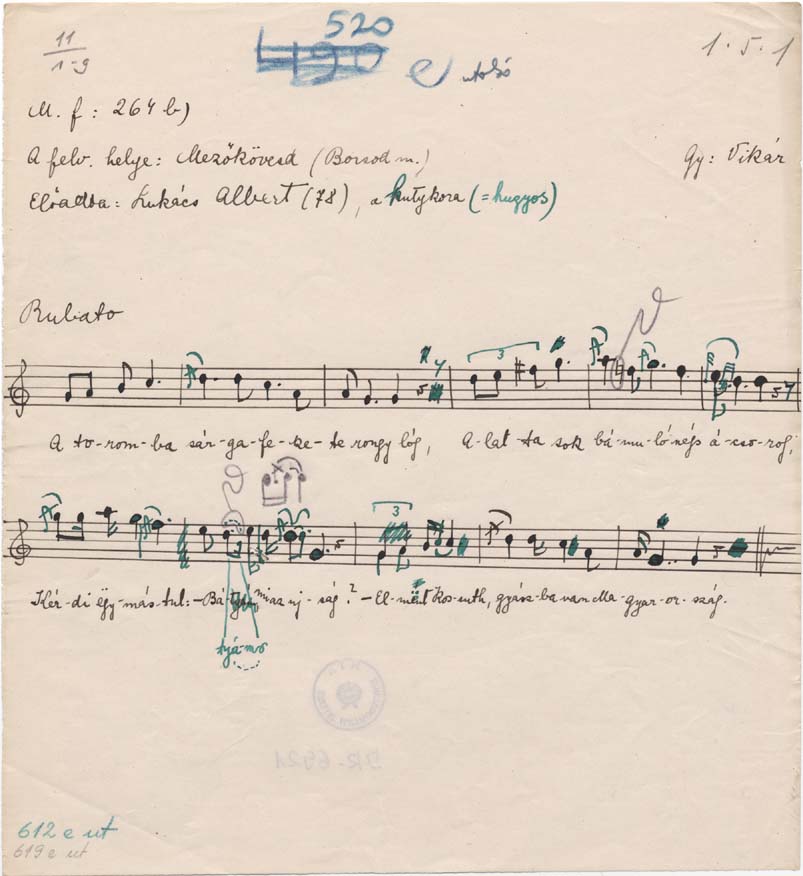 11
1-9
520
490
e utolsó
1.5.1
M. f: 264 b)
A felv. helye: Mezőkövesd (Borsod m.)
Gy: Vikár
Előadta: Lukács Albert (78), a kutykora (=hugyos)
Rubato
3
A to-rom-ba sár-ga-fe-ke-te rongy lóg, A-lat-ta sok bá-mu-ló nép á-cso-rog,
3
Kér-di ëgy-más-tul:- mi az uj-ság? - El-mënt Kos-suth, gyász-ba van Ma-gyar-or-szág.
tyá-mo
DR-6921
612 e ut
619 e ut